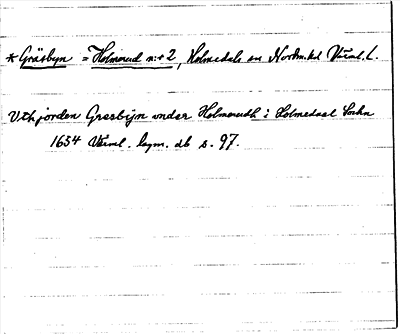 * Gräsbyn = Holmerud n:r 2, Holmedals sn Nordm. hd Värml. L.
Vthjorden Græsbÿn under Holmerudh i Holmedaal Sochn
1654 Värml. lagm. db s. 97.